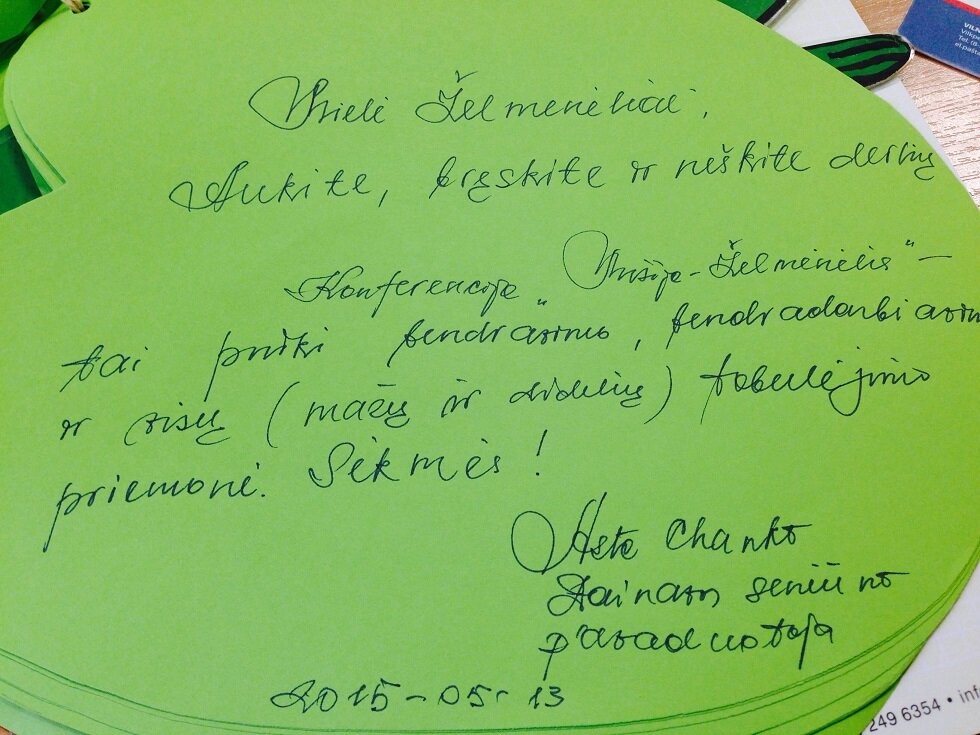 Mieli Želmenėliai,
Aukite, bręskite ir neškite derlių
Konferencija „Mūsų - Želmenėlis" –
tai puiki bendravimo, bendradarbiavimo
ir visų (mažų ir didelių) tobulėjimo
priemonė. Sėkmės!
Asta Chanko
seniūno
pavaduotoja
2015-05-13
VILN
Tel. (8
el.pašta
249 6354 • inf